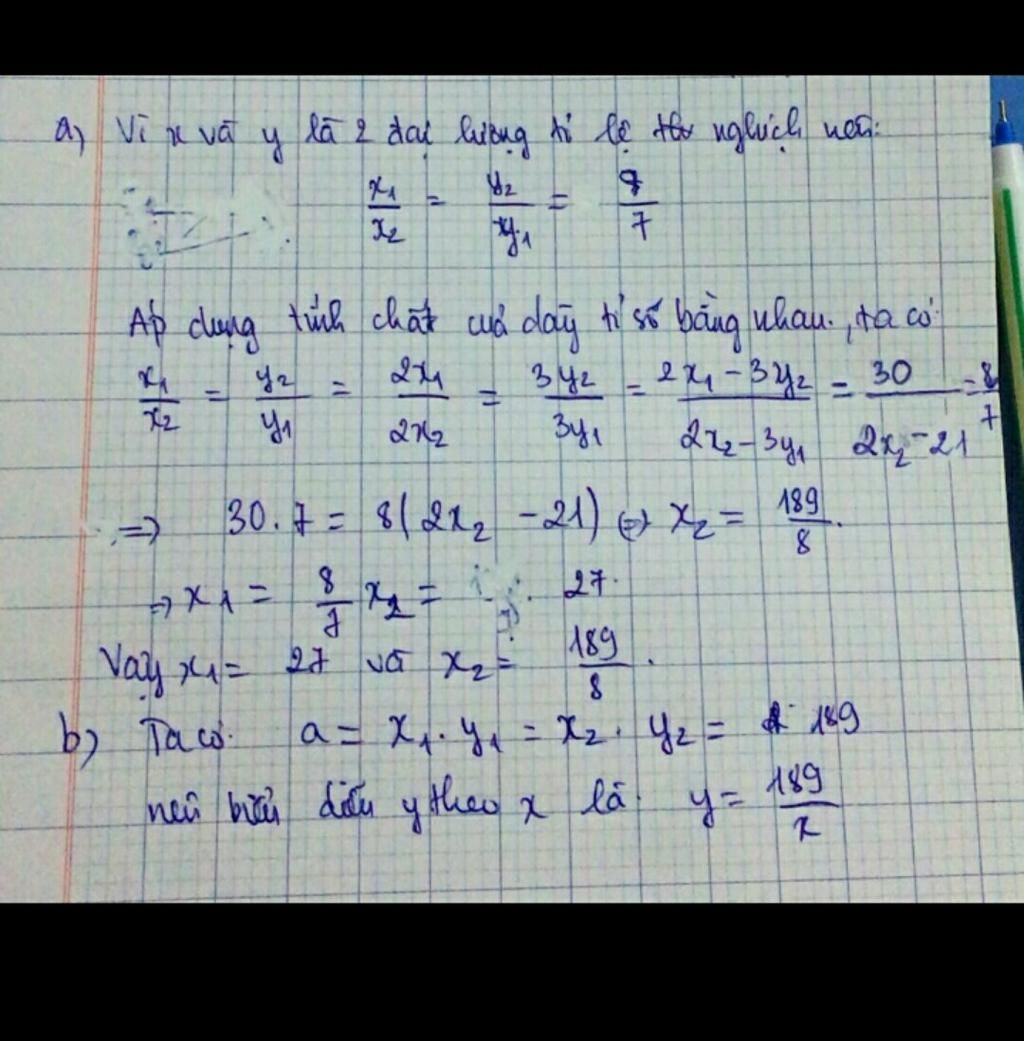 a) Vì x và y là 2 đại lượng tỉ lệ nghịch nên:
x₁/x₂ = y₂/y₁ = 8/7
Áp dụng tính chất của dãy tỉ số bằng nhau, ta có:
x₁/x₂ = y₂/y₁ = 2x₁/2x₂ = 3y₂/3y₁ = (2x₁ - 3y₂)/(2x₂ - 3y₁) = 30/(2x₂ - 21) = 8/7
=> 30.7 = 8(2x₂ - 21) <=> x₂ = 189/8.
=> x₁ = 8/7 x₂ = 27.
Vậy x₁ = 27 và x₂ = 189/8.
b) Ta có: a = x₁ . y₁ = x₂ . y₂ = 189
nên biểu diễn y theo x là: y = 189/x